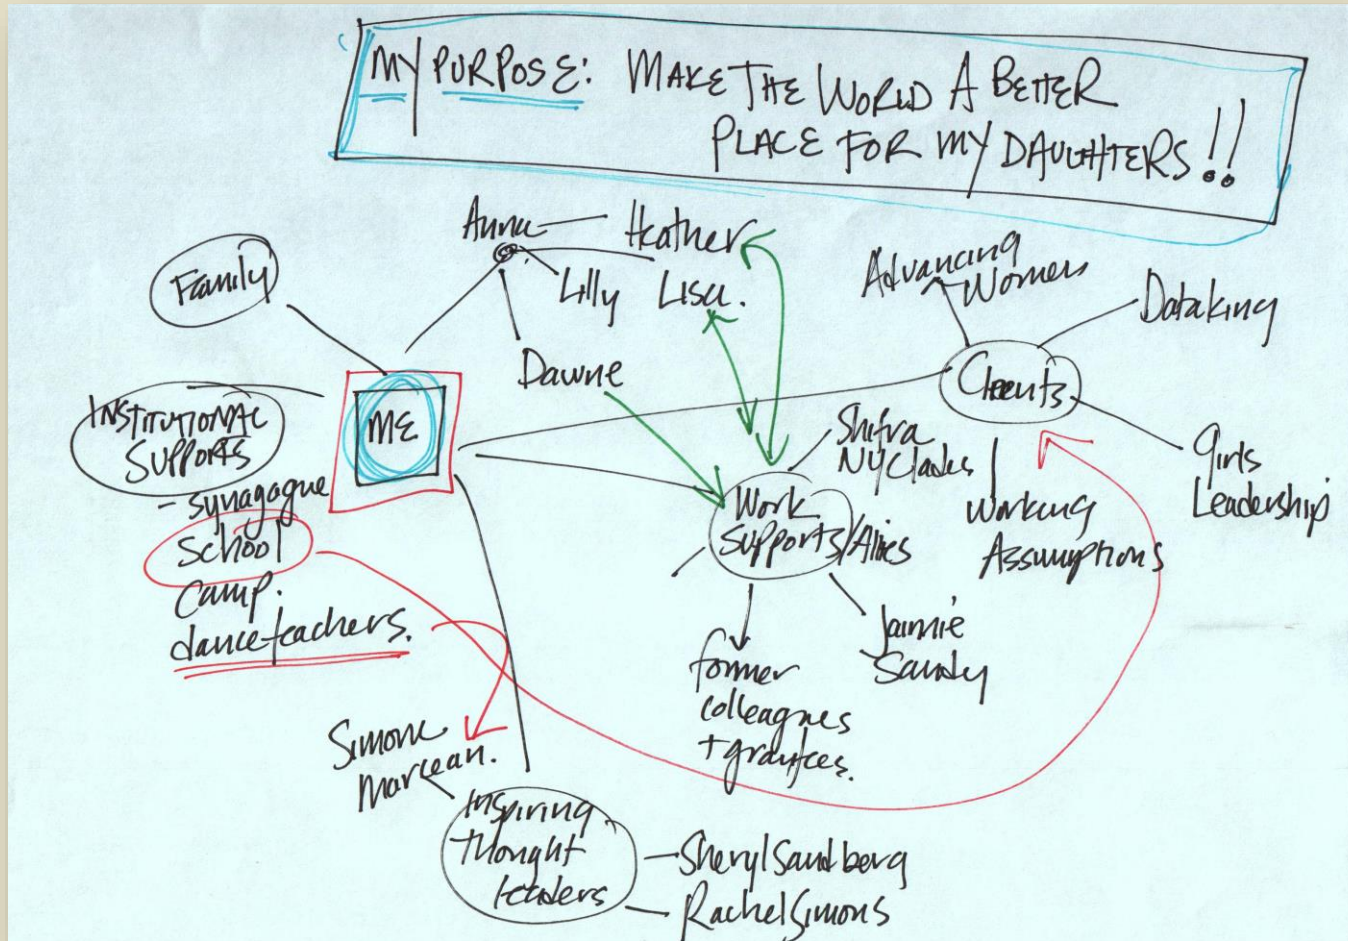 MY PURPOSE: MAKE THE WORLD A BETTER
PLACE FOR MY DAUGHTERS!!
Family
Anna
Heather
Lilly
Lisa.
Dawne
Advancing
Women
Dataking
Clients
Girls
Leadership
Working
Assumptions
INSTITUTIONAL
SUPPORTS
- synagague
School
Camp.
dance teachers.
ME
Shifra
NYC ladies
Work
Supports/Allies
Jamie
Sandy
former
colleagues
+ grantees.
Simone
Marcean.
Inspiring
Thought
leaders
Sheryl Sandberg
Rachel Simons